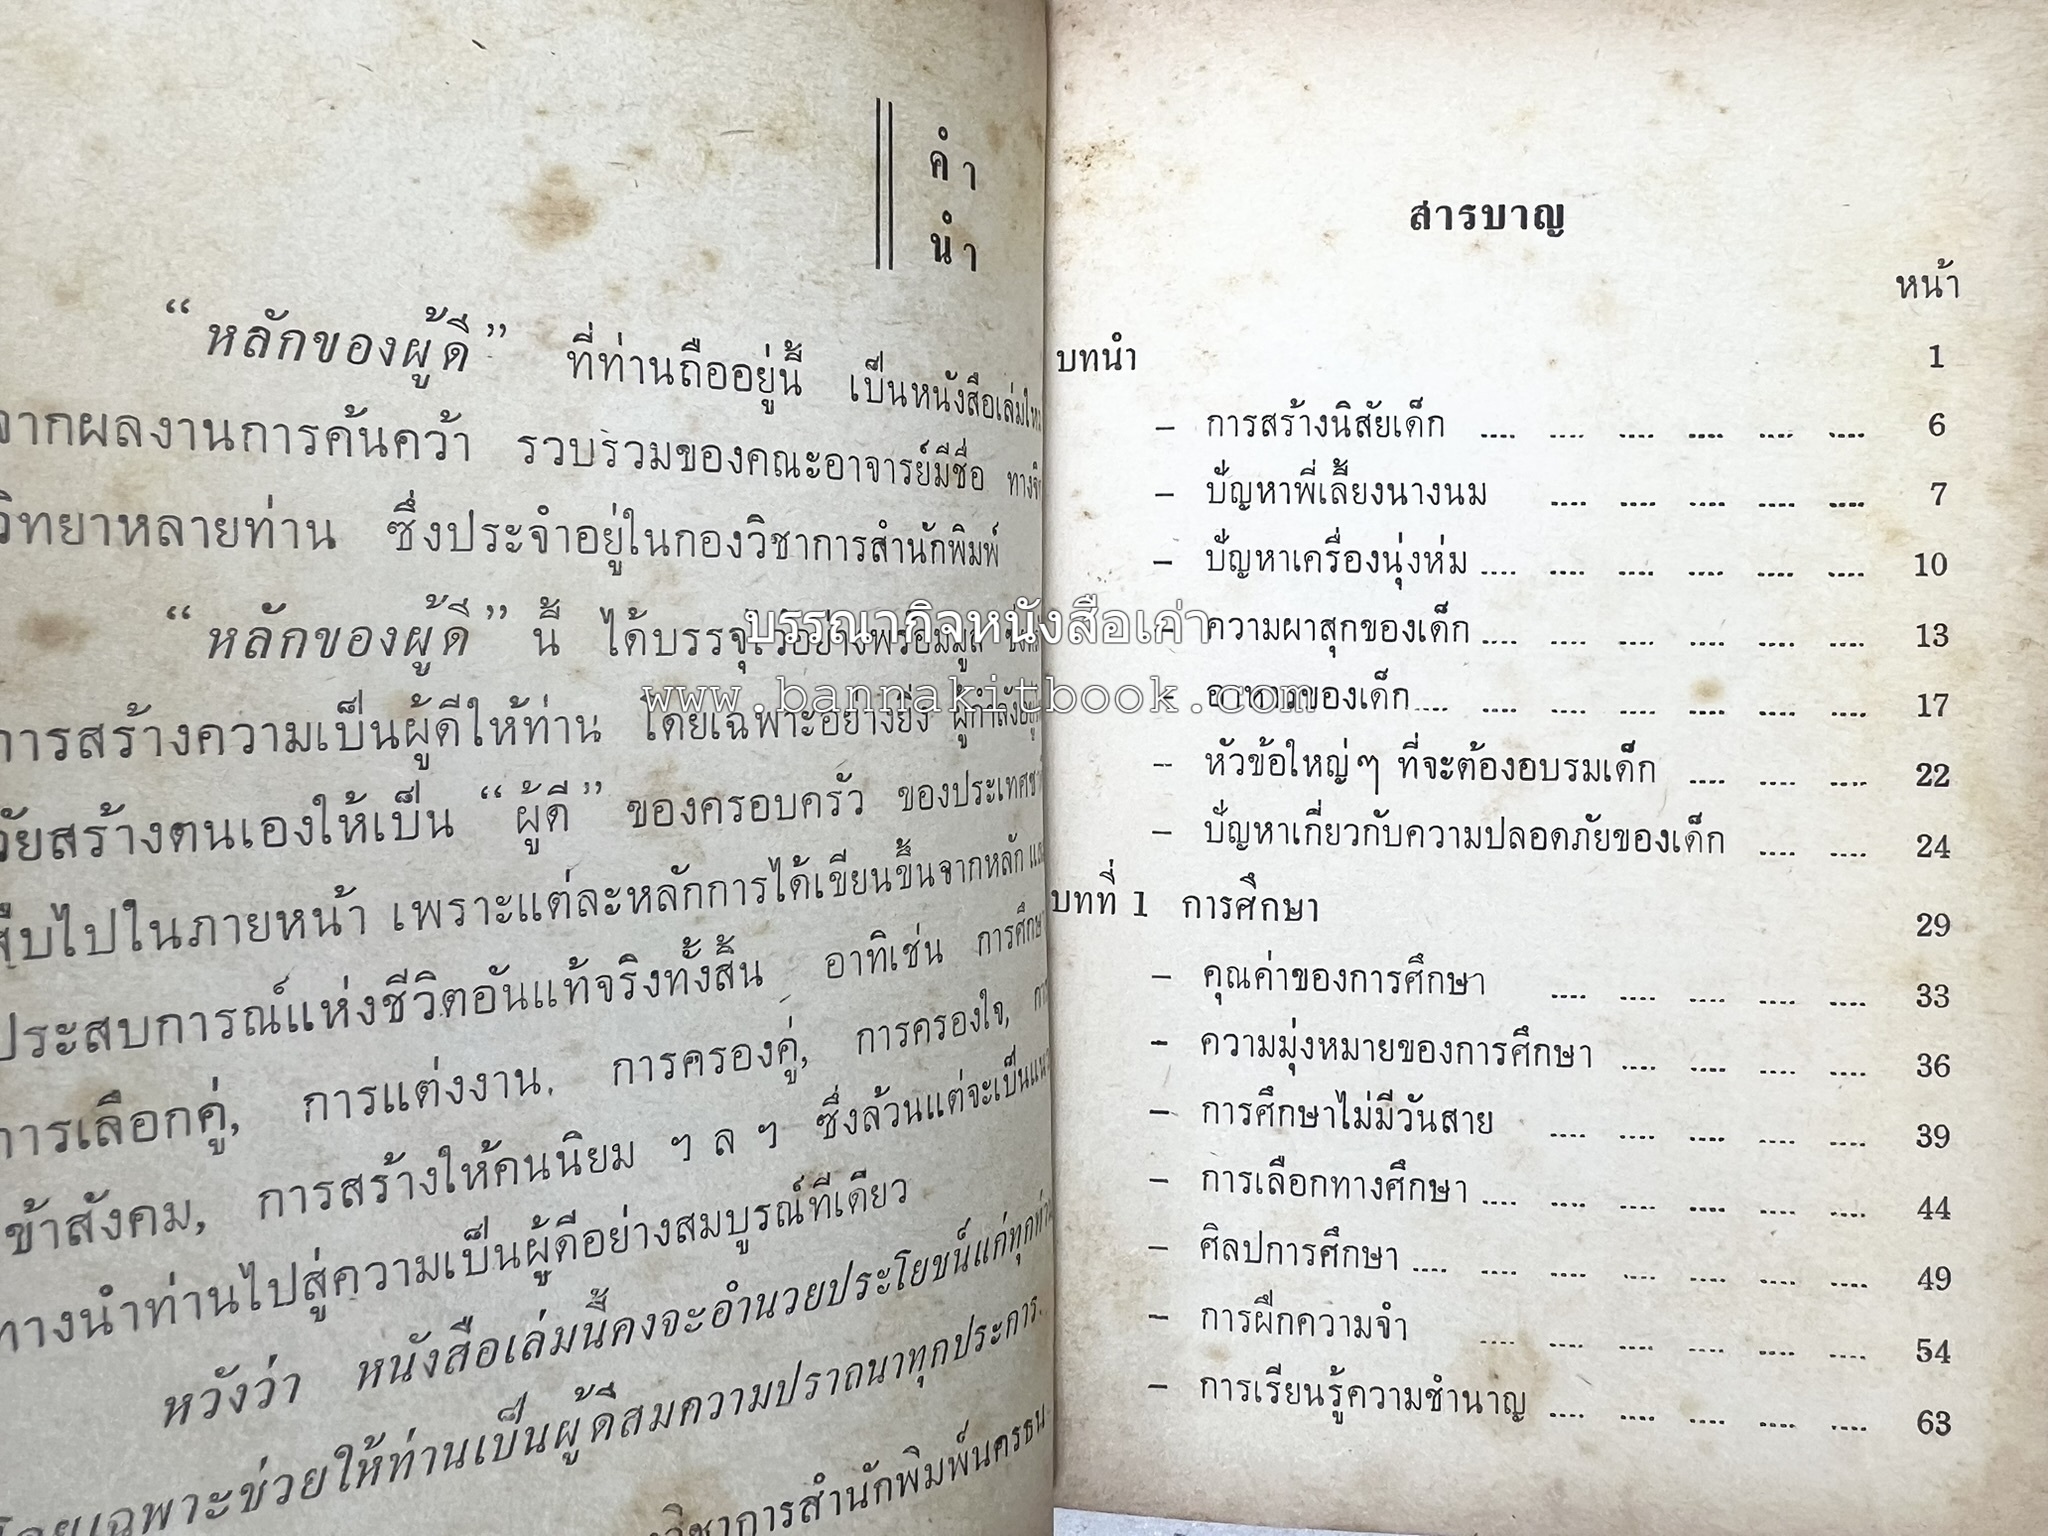 คำ
นำ
“หลักของผู้ดี” ที่ท่านถืออยู่นี้ เป็นหนังสือเล่มใหม่
จากผลงานการค้นคว้า รวบรวมของคณะอาจารย์มีชื่อ
วิทยาหลายท่าน ซึ่งประจำอยู่ในกองวิชาการสำนักพิมพ์
“หลักของผู้ดี” นี้ ได้บรรจุไว้อย่างพร้อมมูล
การสร้างความเป็นผู้ดีให้ท่าน โดยเฉพาะอย่างยิ่ง
วัยสร้างตนเองให้เป็น “ผู้ดี” ของครอบครัว ของประเทศ
สืบไปในภายหน้า เพราะแต่ละหลักการได้เขียนขึ้นจากหลัก
ประสบการณ์แห่งชีวิตอันแท้จริงทั้งสิ้น อาทิเช่น การศึกษา
การเลือกคู่, การแต่งงาน. การครองคู่, การครองใจ,
เข้าสังคม, การสร้างให้คนนิยม ฯ ล ฯ ซึ่งล้วนแต่จะเป็น
ทางนำท่านไปสู่ความเป็นผู้ดีอย่างสมบูรณ์ทีเดียว
หวังว่า หนังสือเล่มนี้คงจะอำนวยประโยชน์แก่ทุกท่าน
โดยเฉพาะช่วยให้ท่านเป็นผู้ดีสมความปราถนาทุกประการ.
วิชาการสำนักพิมพ์นครธน
บรรณากิจหนังสือเก่า
www.bannakitbook.com
สารบาญ
หน้า
บทนำ 1
– การสร้างนิสัยเด็ก .... .... .... .... .... .... 6
– ปัญหาพี่เลี้ยงนางนม .... .... .... .... .... 7
– ปัญหาเครื่องนุ่งห่ม .... .... .... .... .... .... 10
– ความผาสุกของเด็ก .... .... .... .... .... .... 13
– อาหารของเด็ก .... .... .... .... .... .... .... 17
– หัวข้อใหญ่ๆ ที่จะต้องอบรมเด็ก .... .... .... 22
– ปัญหาเกี่ยวกับความปลอดภัยของเด็ก .... .... 24
บทที่ 1 การศึกษา 29
– คุณค่าของการศึกษา .... .... .... .... .... 33
– ความมุ่งหมายของการศึกษา .... .... .... .... 36
– การศึกษาไม่มีวันสาย .... .... .... .... .... 39
– การเลือกทางศึกษา .... .... .... .... .... .... 44
– ศิลปการศึกษา .... .... .... .... .... .... .... 49
– การฝึกความจำ .... .... .... .... .... .... 54
– การเรียนรู้ความชำนาญ .... .... .... .... .... 63